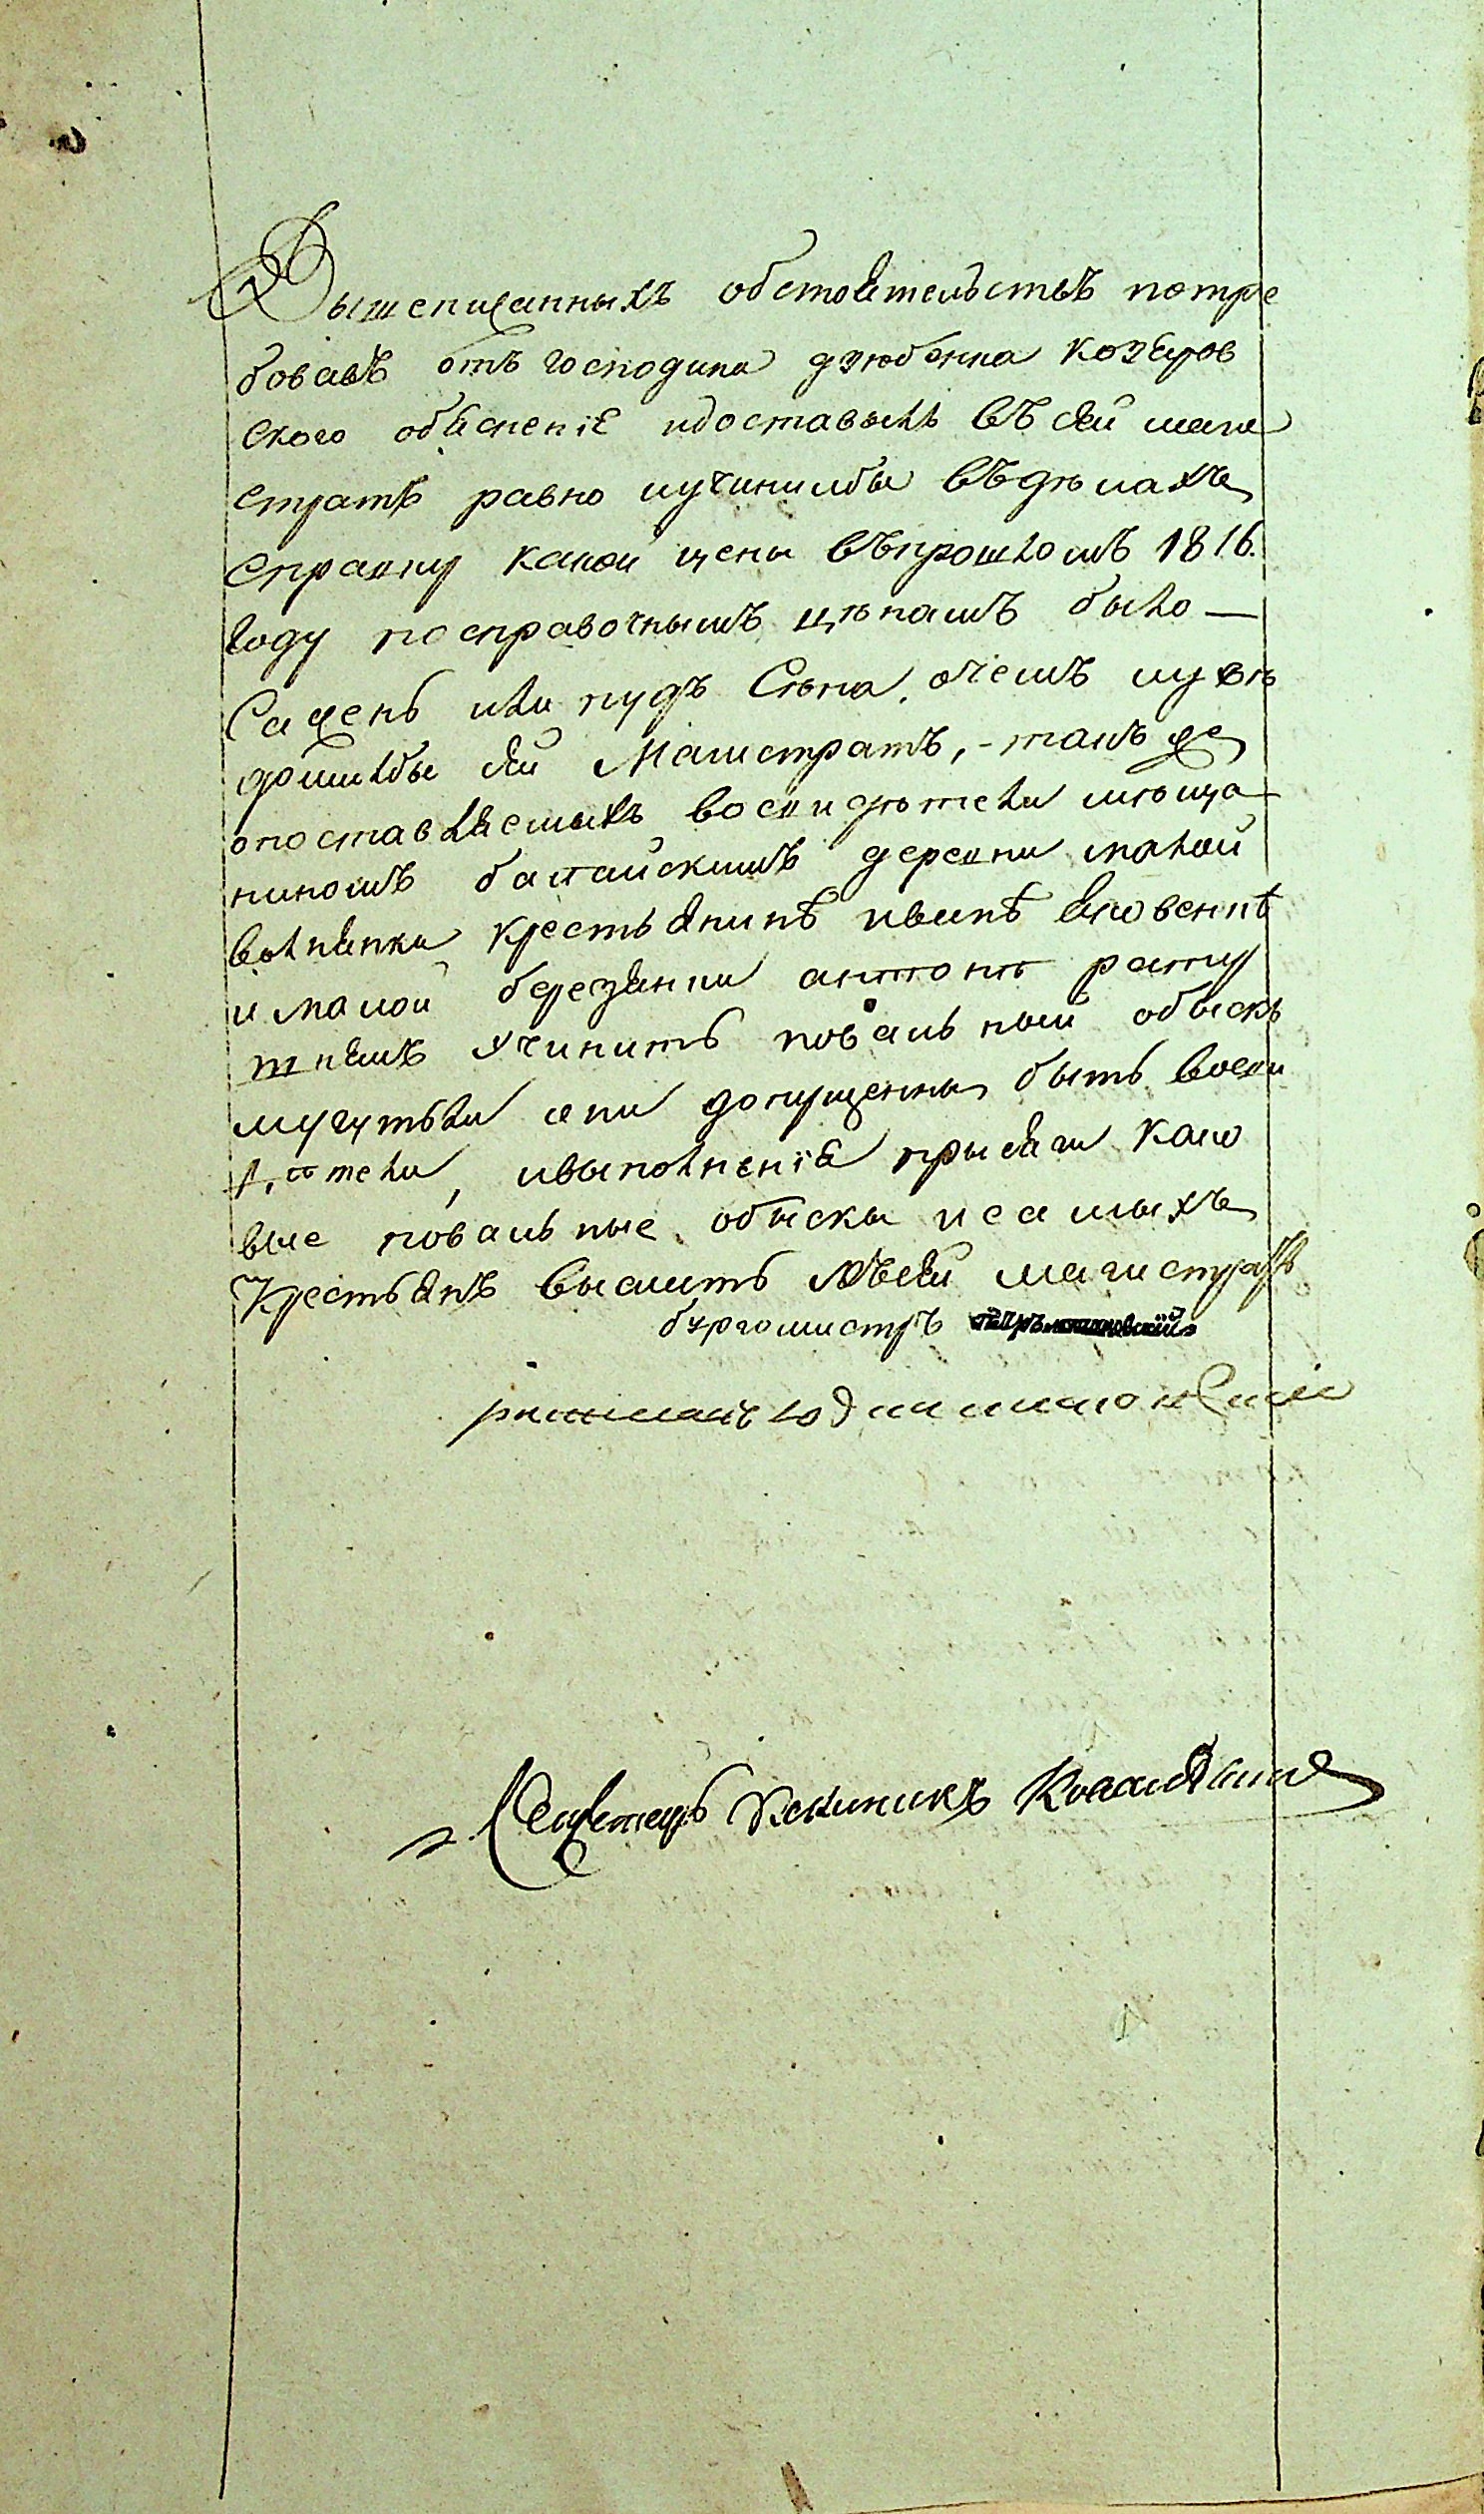 Вышеписанныхъ обстоятельствъ потре
бовавъ отъ господина дзюбенка козѣров
ского обясненіе идоставылъ въ сей маги
стратъ равно иучинилбы въдѣлахъ
справку какой цены въпрошломъ 1816.
году посправочнымъ цѣнамъ было —
Сажень или пудъ Сѣна, очемъ иувѣ
домилбы сей Магистратъ, - такъ же
опоставляемыхъ восвидѣтели мѣща
ниномъ батайскимъ деревни малой
волнянки крестьянинѣ иванѣ яковенкѣ
и малой березянки антонѣ
учинить повальный обыскъ
могутъли они допущенны быть восви
дѣтели, ивыполненіе присяги како
вые повальные обыски исамыхъ
Крестьянъ выслать въсей магистратъ
бургомистръ
ратманъ
Секретарь